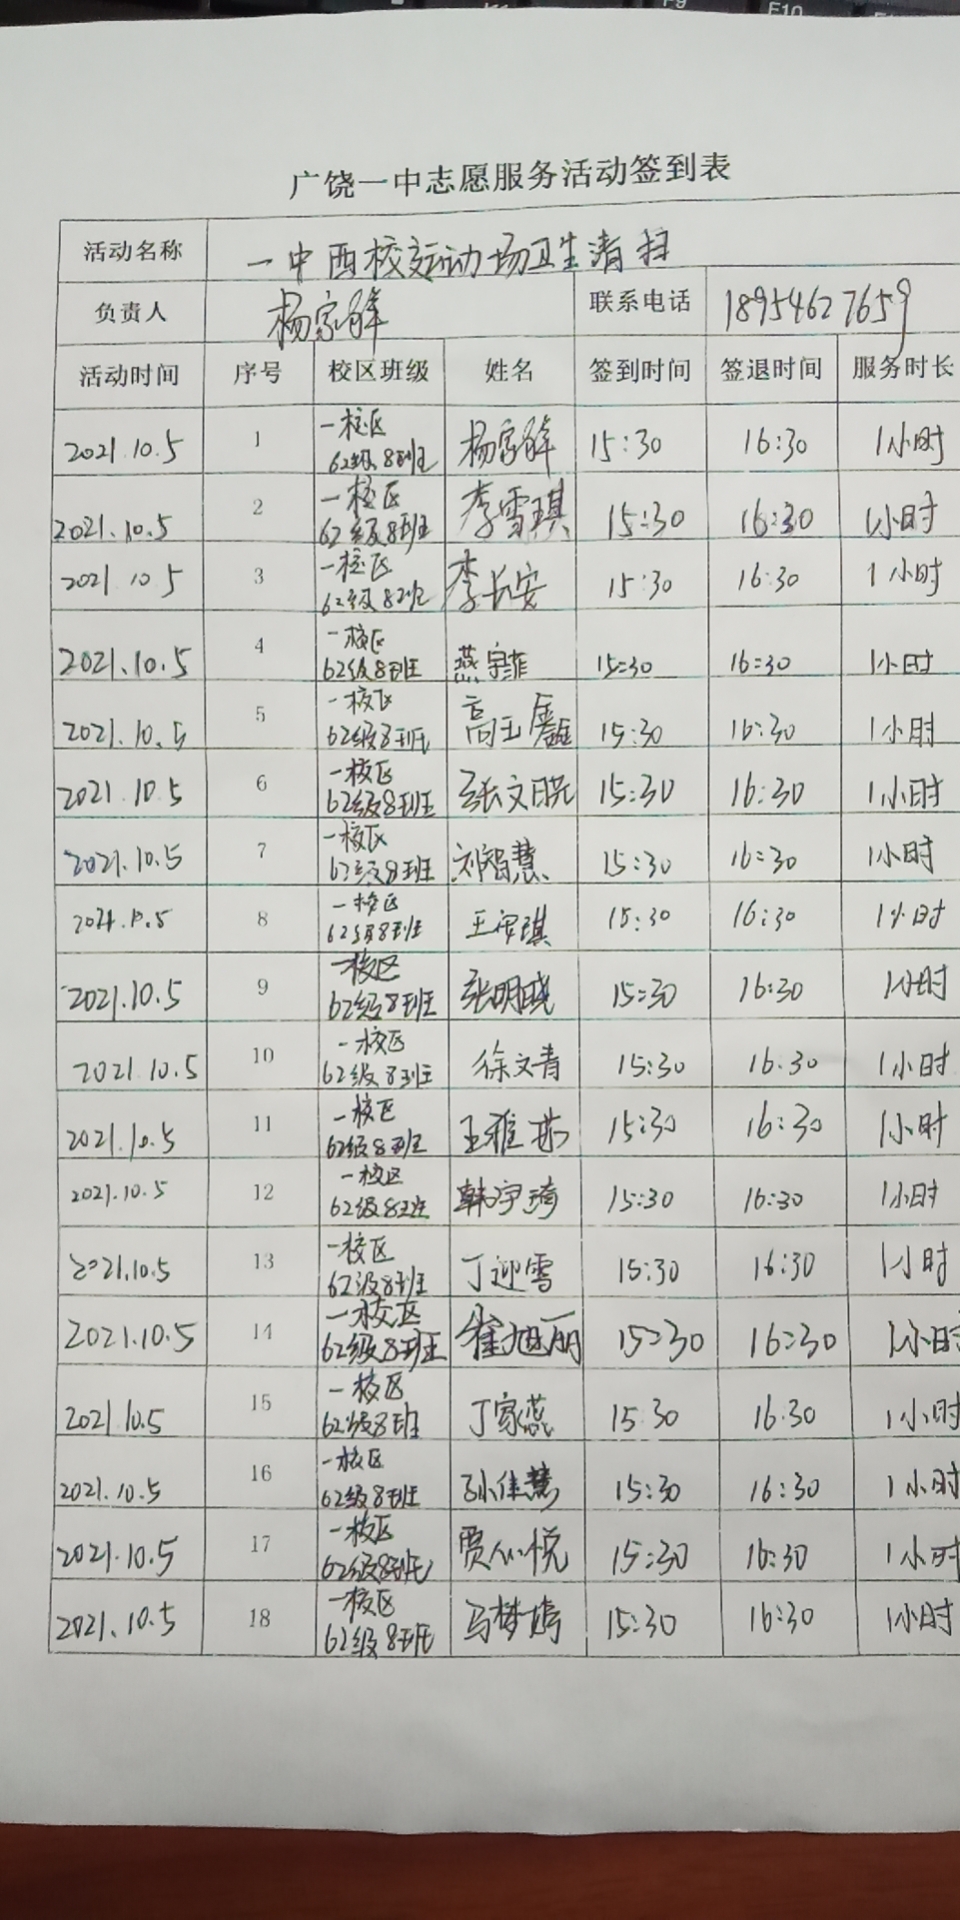 F9 F10
广饶一中志愿服务活动签到表
活动名称 一中西校运动场卫生清扫
负责人 杨家 联系电话 18954627659
活动时间 序号 校区班级 姓名 签到时间 签退时间 服务时长
2021.10.5 1 一校区 62级8班 杨家 15:30 16:30 1小时
2021.10.5 2 一校区 62级8班 李雪琪 15:30 16:30 1小时
2021 10 5 3 一校区 62级8班 李长安 15:30 16:30 1小时
2021.10.5 4 一校区 62级8班 燕宇菲 15:30 16:30 1小时
2021.10.5 5 一校区 62级8班 高玉 15:30 16:30 1小时
2021.10.5 6 一校区 62级8班 张文 15:30 16:30 1小时
2021.10.5 7 一校区 62级8班 刘智慧 15:30 16:30 1小时
2021.10.5 8 一校区 62级8班 王 琪 15:30 16:30 1小时
2021.10.5 9 一校区 62级8班 张明晓 15:30 16:30 1小时
2021.10.5 10 一校区 62级8班 徐文青 15:30 16.30 1小时
2021.10.5 11 一校区 62级8班 王雅茹 15:30 16:30 1小时
2021.10.5 12 一校区 62级8班 韩宇琦 15:30 16:30 1小时
2021.10.5 13 一校区 62级8班 丁迎雪 15:30 16:30 1小时
2021.10.5 14 一校区 62级8班 崔旭丽 15:30 16:30 1小时
2021.10.5 15 一校区 62级8班 丁家燕 15.30 16.30 1小时
2021.10.5 16 一校区 62级8班 孙佳慧 15:30 16:30 1小时
2021.10.5 17 一校区 62级8班 贾 悦 15:30 16:30 1小时
2021.10.5 18 一校区 62级8班 马梦嫣 15:30 16:30 1小时